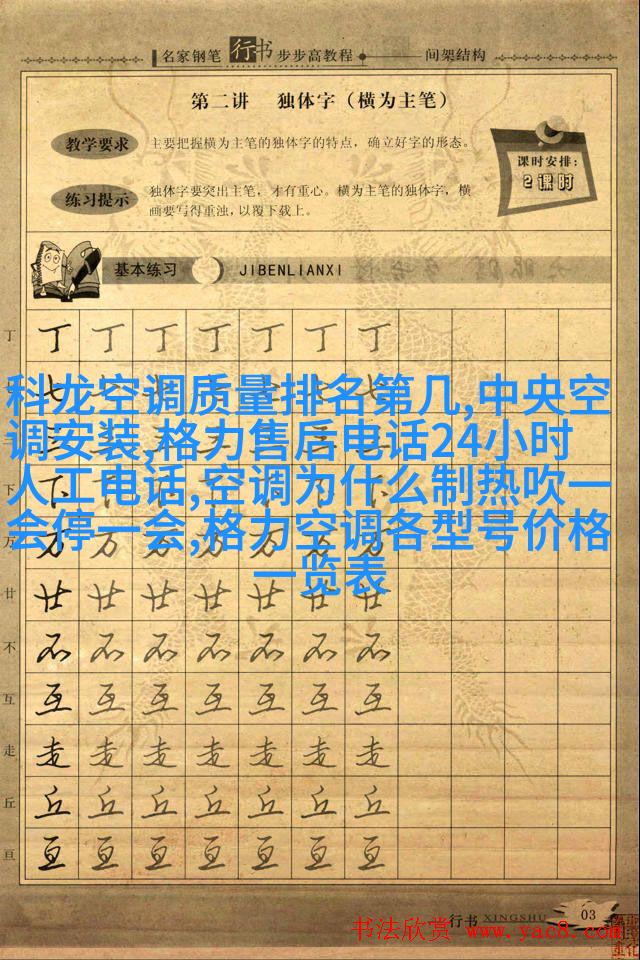 名家钢笔 行书 步步高教程 间架结构
第二讲 独体字（横为主笔）
教学要求 主要把握横为主笔的独体字的特点，确立好字的形态。
课时安排：
2课时
练习提示 独体字要突出主笔，才有重心。横为主笔的独体字，横
画要写得重浊，以覆下载上。
基本练习 JIBENLIANXI
丁 丁 丁 丁 丁 丁 丁 丁
七
科龙空调质量排名第几,中央空
调安装,格力售后电话24小时
人工电话,空调为什么制热吹一
会停一会,格力空调各型号价格
一览表
下
万
廿 廿 廿 廿 廿 廿 廿 廿
不 不 不 不 不 不 不 不
互 互 互 互 互 互 互 互
走 走 走 走 走 走 走 走
丘 丘 丘 丘 丘 丘 丘 丘
亘 亘 亘 亘 亘 亘 亘 亘
行书 XINGSHU 03
书法欣赏 www.yac8.com